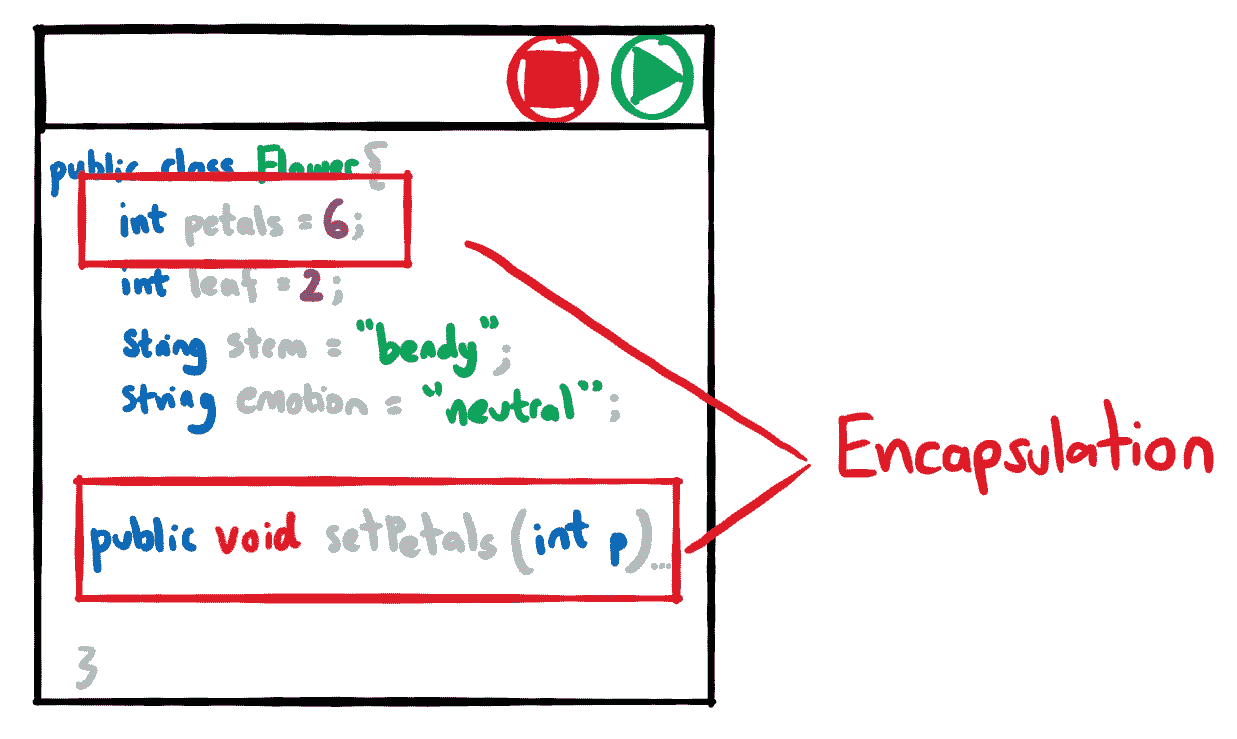 public class Flower {
int petals = 6;
int leaf = 2;
String stem = "bendy";
String emotion = "neutral";
public void setPetals (int p)...
}
Encapsulation